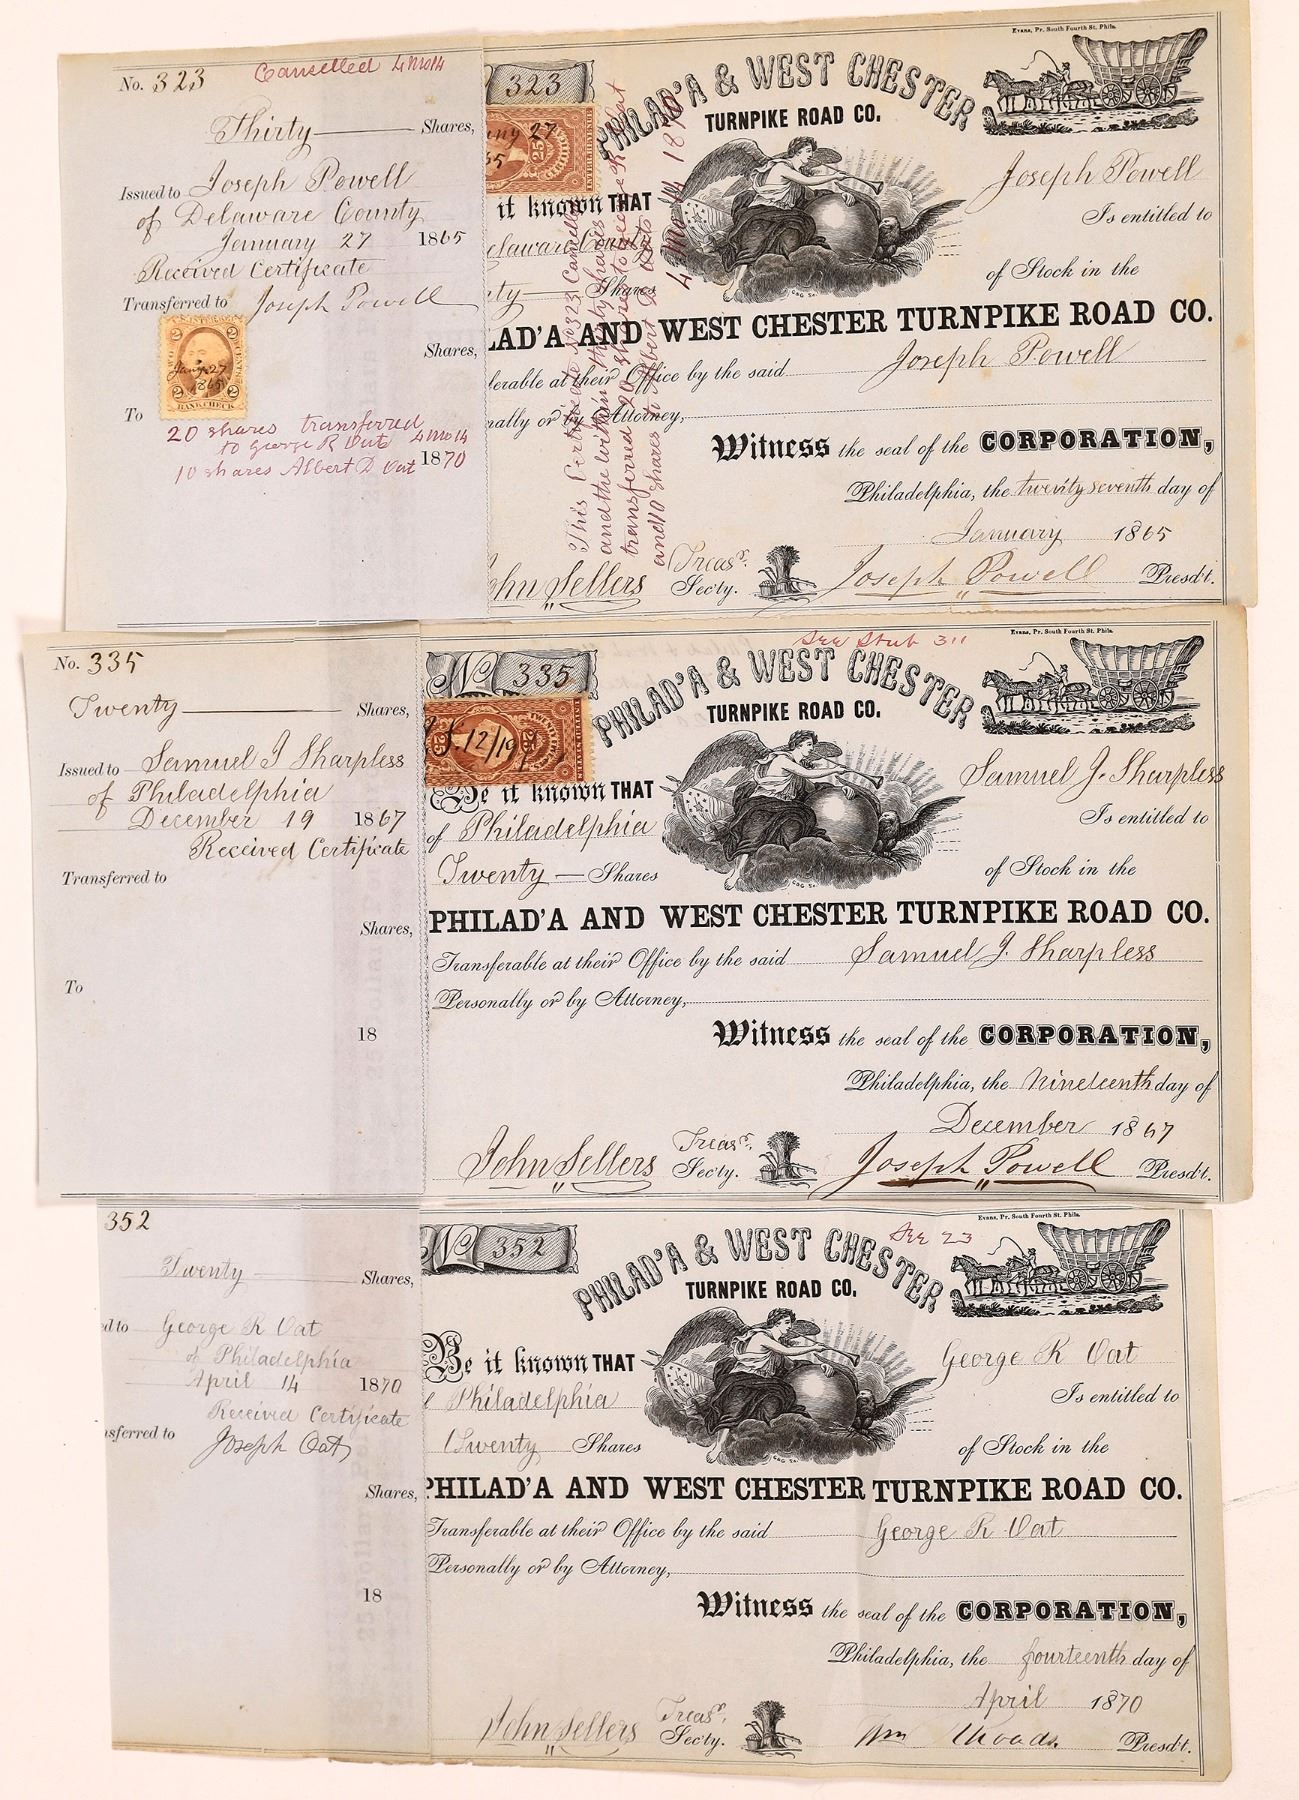 No. 323
Cancelled 4 mo 14
Thirty Shares,
Issued to Joseph Powell
of Delaware County
January 27 1865
Received Certificate
Transferred to Joseph Powell
Shares,
2 2
Jany 27
1865
2 2
BANK CHECK
To
20 shares transferred
to George R Oat 4 mo 14
10 shares Albert D Oat 1870
Evans, Pr. South Fourth St. Phila.
323
PHILAD'A & WEST CHESTER
TURNPIKE ROAD CO.
27
25
65
Joseph Powell
it known THAT
Is entitled to
elaware County
ty Shares
of Stock in the
LAD'A AND WEST CHESTER TURNPIKE ROAD CO.
ferable at their Office by the said Joseph Powell
nally or by Attorney,
Witness the seal of the CORPORATION,
Philadelphia, the twenty seventh day of
January 1865
ohn Sellers Treasr. Sec'ty.
Joseph Powell Presd't.
This Certificate No 323 Cancelled
and the within thirty shares
transferred 20 shares to George R Oat
and 10 shares to Albert D Oat
4 mo 14 1870
No. 335
Twenty Shares,
Issued to Samuel J Sharpless
of Philadelphia
December 19 1867
Received Certificate
Transferred to
Shares,
To
18
See Stub 311
Evans, Pr. South Fourth St. Phila.
No 335
PHILAD'A & WEST CHESTER
TURNPIKE ROAD CO.
12/19
25
Samuel J. Sharpless
Be it known THAT
Is entitled to
of Philadelphia
Twenty Shares
of Stock in the
PHILAD'A AND WEST CHESTER TURNPIKE ROAD CO.
Transferable at their Office by the said Samuel J. Sharpless
Personally or by Attorney,
Witness the seal of the CORPORATION,
Philadelphia, the Nineteenth day of
December 1867
John Sellers Treasr. Sec'ty.
Joseph Powell Presd't.
352
Twenty Shares,
ed to George R Oat
of Philadelphia
April 14 1870
Received Certificate
nsferred to Joseph Oat
Shares,
18
Evans, Pr. South Fourth St. Phila.
See 23
No 352
PHILAD'A & WEST CHESTER
TURNPIKE ROAD CO.
George R Oat
Be it known THAT
Is entitled to
Philadelphia
Twenty Shares
of Stock in the
PHILAD'A AND WEST CHESTER TURNPIKE ROAD CO.
Transferable at their Office by the said George R Oat
Personally or by Attorney,
Witness the seal of the CORPORATION,
Philadelphia, the fourteenth day of
April 1870
John Sellers Treasr. Sec'ty.
Wm Rhoads. Presd't.